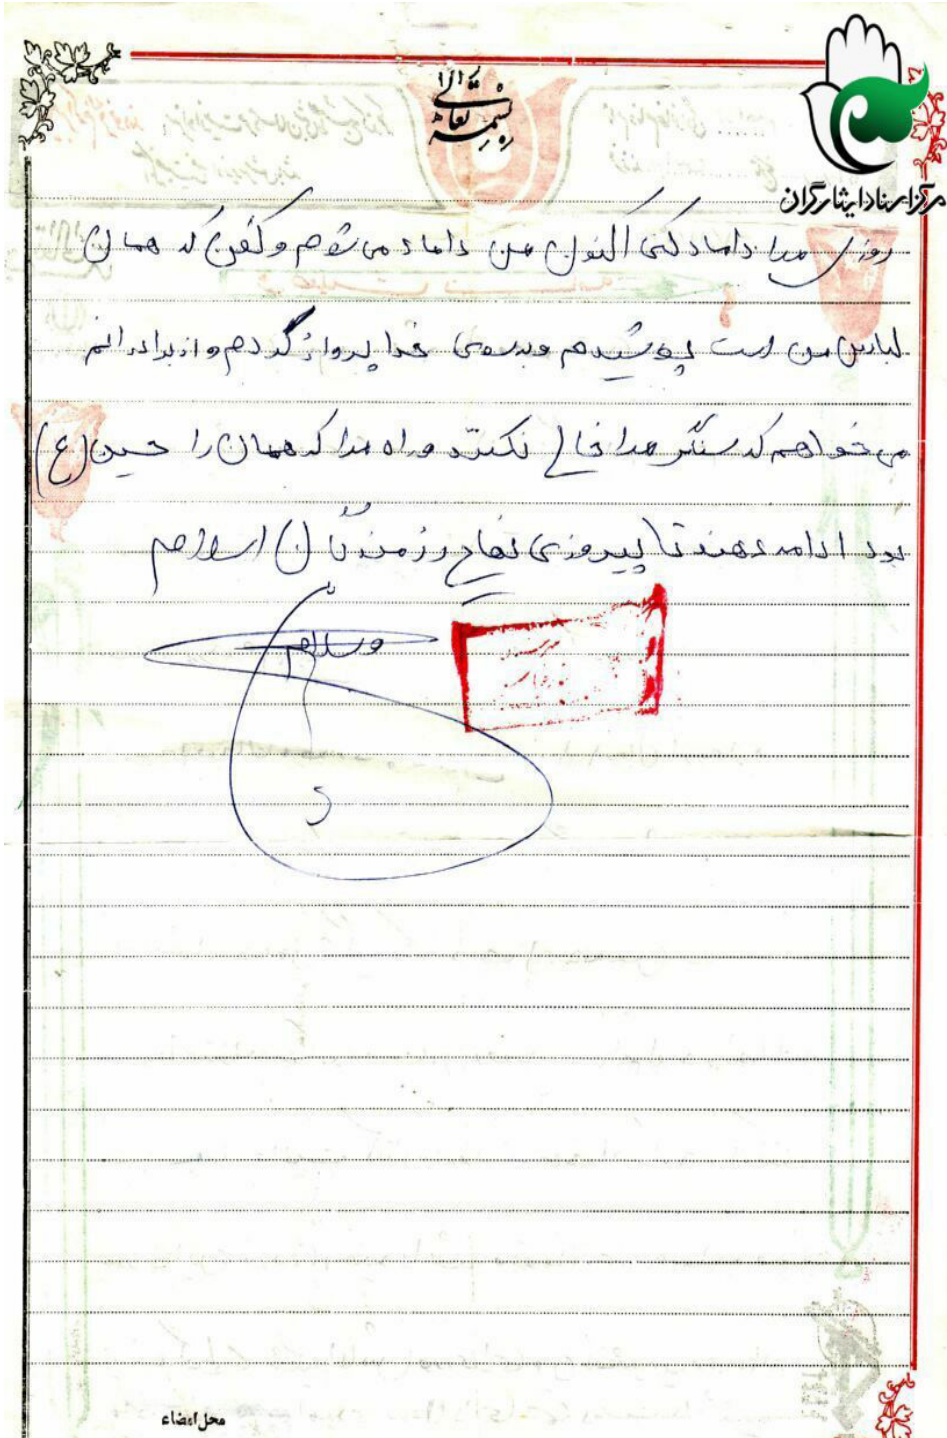 بسمه تعالی
مرکز اسناد ایثارگران
روزی مرا داماد کنی اکنون من داماد می شوم و کفن که همان
لباس من است پوشیدم و بسوی خدا پرواز کردم و از برادرانم
می خواهم که سنگر مرا خالی نکنند و راه مرا که همان راه حسین (ع)
بود ادامه دهند تا پیروزی نهایی رزمندگان اسلام
وسلام
محل امضاء